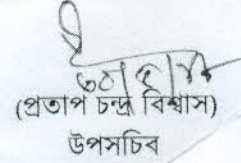 (প্রতাপ চন্দ্র বিশ্বাস)
উপসচিব